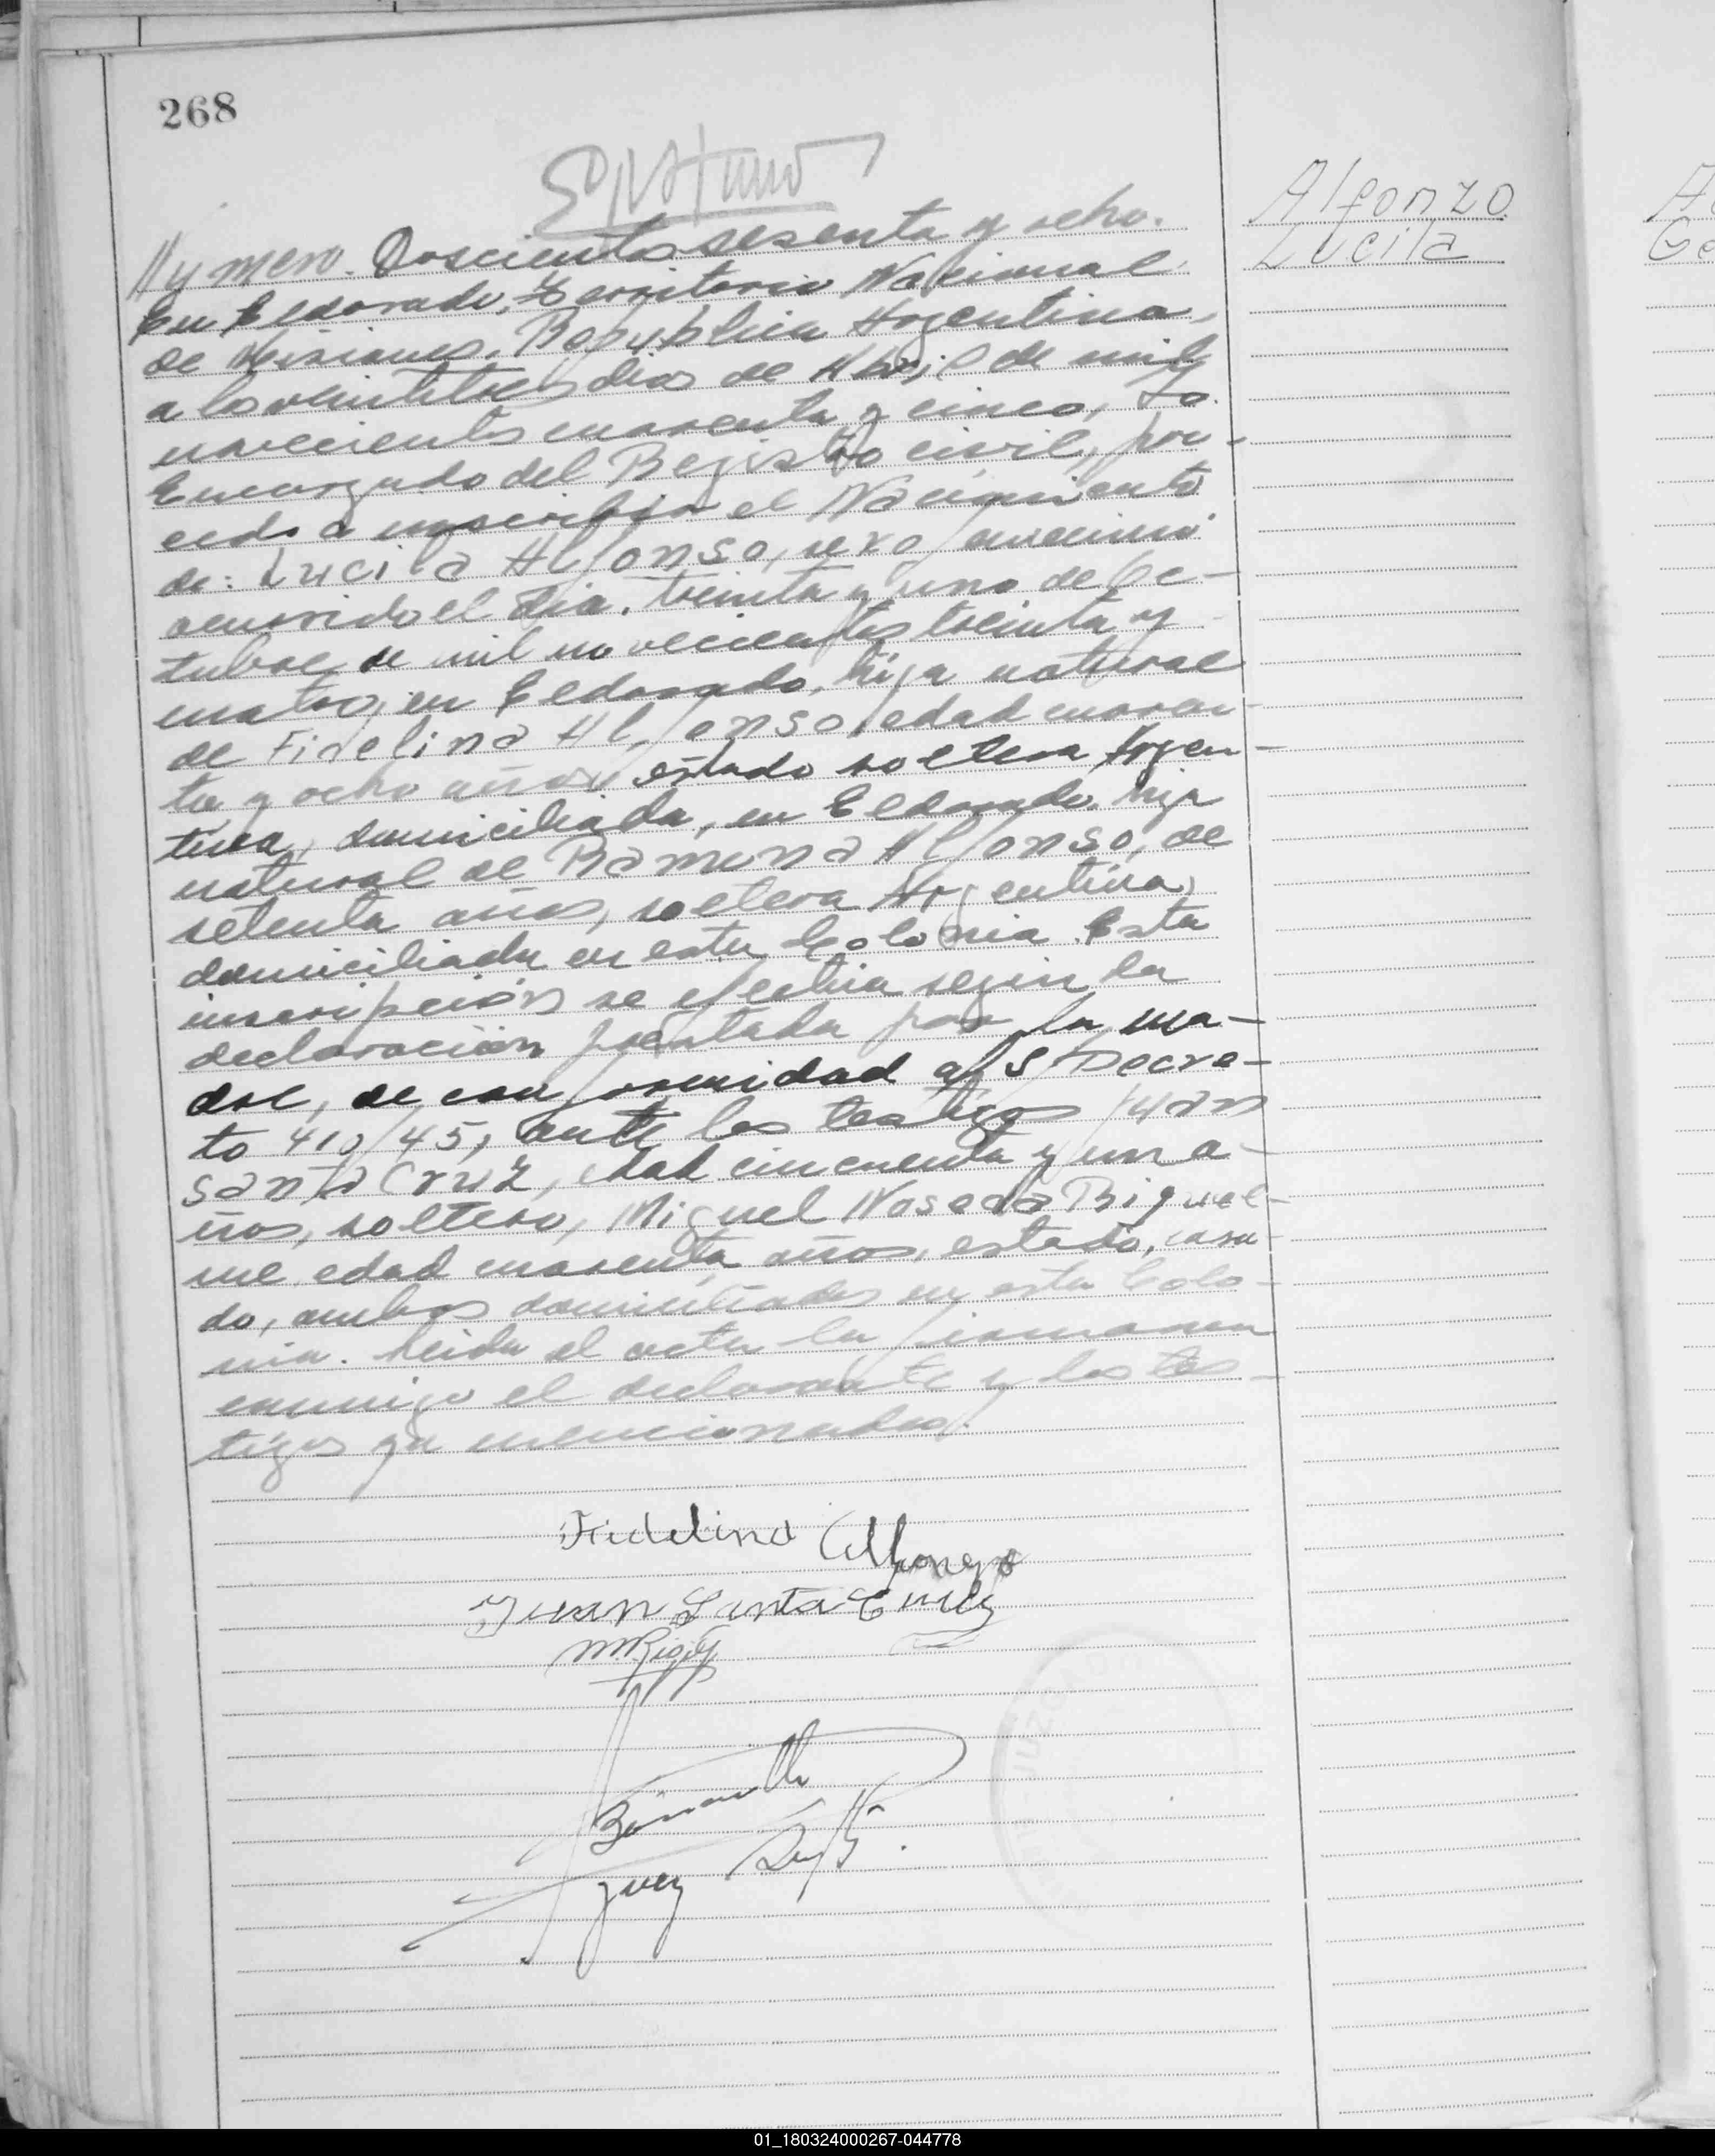 268
Alfonzo
Lucila
Número. Doscientos sesenta y ocho.
En Eldorado, Territorio Nacional
de Misiones, República Argentina,
a los veintitres dias de Abril de mil
novecientos cuarenta y cinco, Yo.
Encargado del Registro civil, pro-
cedo a inscribir el Nacimiento
de: Lucila Alfonso, sexo femenino
ocurrido el dia. treinta y uno de Oc-
tubre, de mil novecientos treinta y
cuatro, en Eldorado, hija natural
de Fidelina Alfonso, edad cuaren-
ta y ocho años, estado soltera Argen-
tina, domiciliada, en Eldorado. hija
natural de Ramona Alfonso, de
setenta años, soltera Argentina,
domiciliada en esta Colonia. Esta
inscripción se efectua segun la
declaración prestada por la ma-
dre, de conformidad al S/ Decre-
to 410/45, ante los testigos Juan
Santa Cruz, edad cincuenta y un a-
ños, soltero, Miguel Noseda Riquel-
me, edad cuarenta años, estado, casa-
do, ambos domiciliados en esta Colo-
nia. Leida el acta la firmaron
conmigo el declarante y los tes-
tigos ya mencionados.
Fidelina Alfonzo
Juan Santa Cruz
Juez
01_180324000267-044778